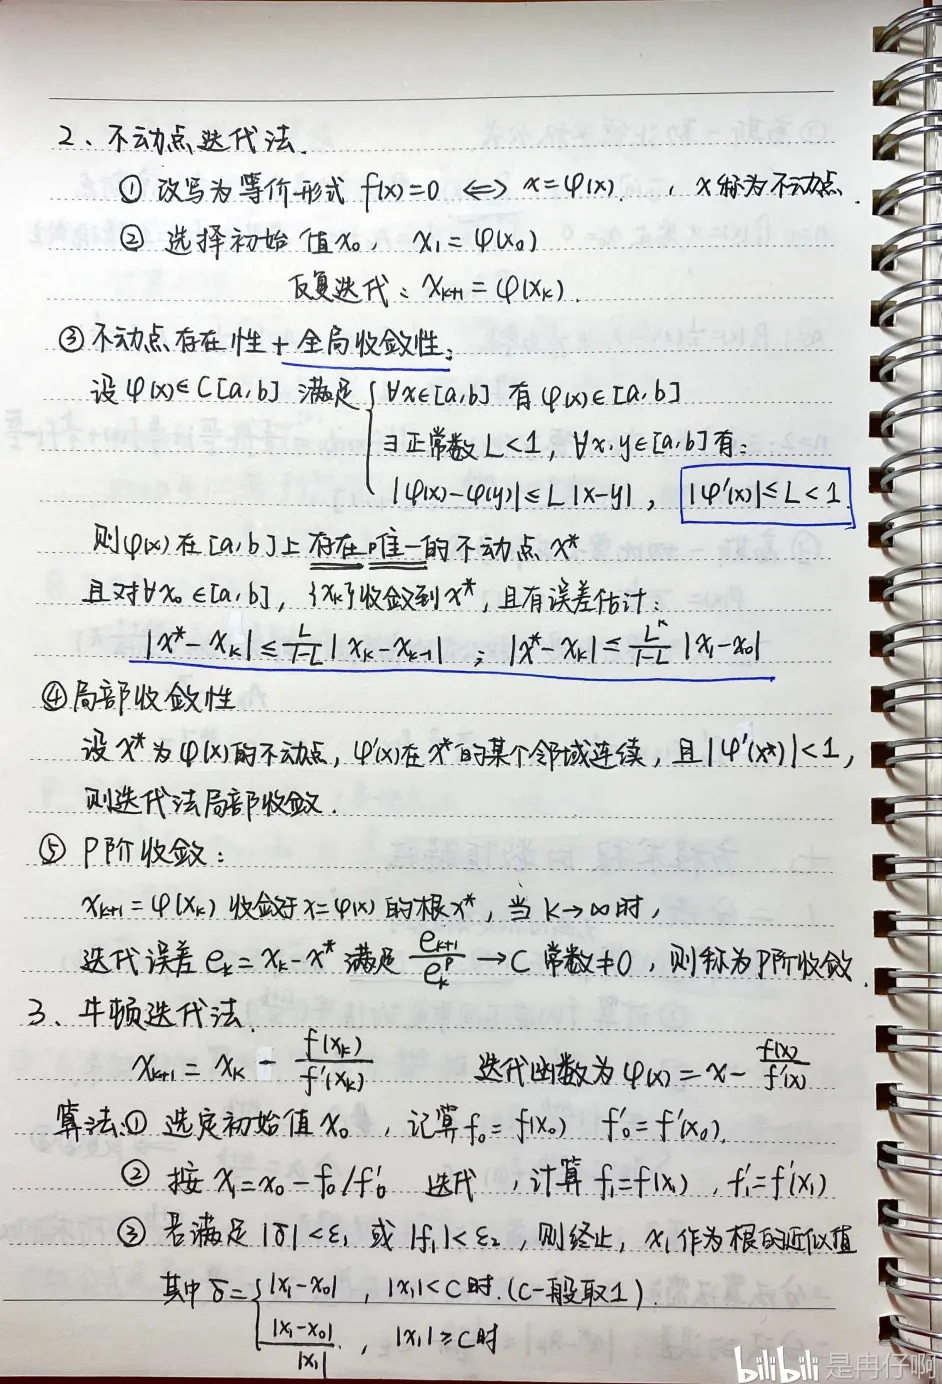 2、不动点迭代法.
① 改写为等价形式 f(x)=0 ⟺ x=φ(x). , x称为不动点.
② 选择初始值x₀, x₁=φ(x₀)
反复迭代: xₖ₊₁=φ(xₖ).
③ 不动点存在性+全局收敛性:
设φ(x)∈C[a,b] 满足 { ∀x∈[a,b] 有φ(x)∈[a,b]
∃正常数L<1, ∀x,y∈[a,b]有:
|φ(x)-φ(y)|≤L|x-y| , |φ'(x)|≤L<1
则φ(x)在[a,b]上存在唯一的不动点x*
且对∀x₀∈[a,b], {xₖ}收敛到x*,且有误差估计:
|x*-xₖ|≤L/(1-L) |xₖ-xₖ₋₁| ; |x*-xₖ|≤Lᴷ/(1-L) |x₁-x₀|
④局部收敛性
设x*为φ(x)的不动点,φ'(x)在x*的某个邻域连续,且|φ'(x*)|<1,
则迭代法局部收敛.
⑤ P阶收敛:
xₖ₊₁=φ(xₖ) 收敛于x=φ(x)的根x*,当K→∞时,
迭代误差eₖ=xₖ-x* 满足 eₖ₊₁/eₖᴾ→C 常数≠0,则称为P阶收敛.
3、牛顿迭代法.
xₖ₊₁=xₖ-f(xₖ)/f'(xₖ) 迭代函数为φ(x)=x-f(x)/f'(x)
算法:① 选定初始值x₀ ,记算f₀=f(x₀) f₀'=f'(x₀).
② 按x₁=x₀-f₀/f₀' 迭代 ,计算f₁=f(x₁) ,f₁'=f'(x₁)
③ 若满足|δ|<ε₁ 或|f₁|<ε₂,则终止,x₁作为根的近似值
其中δ={ |x₁-x₀| , |x₁|<C时.(C一般取1).
|x₁-x₀|/|x₁| , |x₁|≥C时
bilibili 是冉仔啊